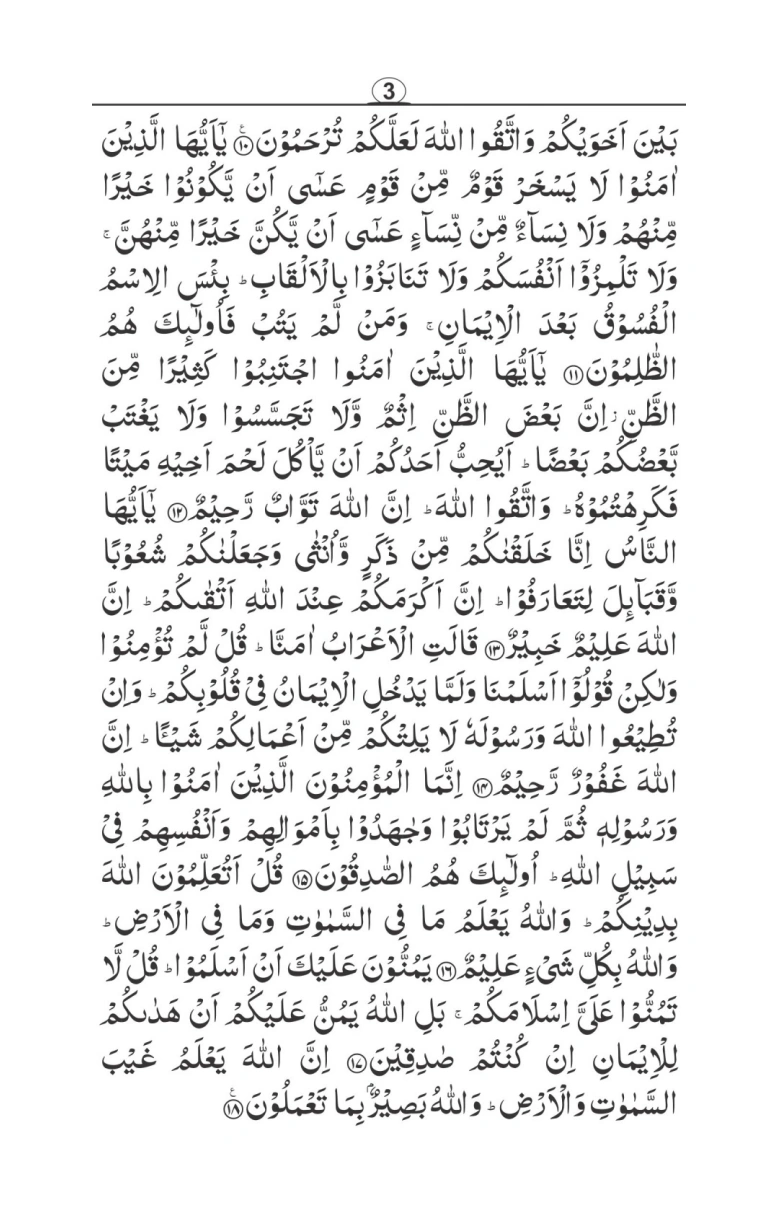 3
بَيْنَ اَخَوَيْكُمْ وَاتَّقُوا اللّٰهَ لَعَلَّكُمْ تُرْحَمُوْنَ ﴿۱۰﴾ يٰٓاَيُّهَا الَّذِيْنَ
اٰمَنُوْا لَا يَسْخَرْ قَوْمٌ مِّنْ قَوْمٍ عَسٰٓى اَنْ يَّكُوْنُوْا خَيْرًا
مِّنْهُمْ وَلَا نِسَآءٌ مِّنْ نِّسَآءٍ عَسٰٓى اَنْ يَّكُنَّ خَيْرًا مِّنْهُنَّ ۚ
وَلَا تَلْمِزُوْٓا اَنْفُسَكُمْ وَلَا تَنَابَزُوْا بِالْاَلْقَابِ ؕ بِئْسَ الِاسْمُ
الْفُسُوْقُ بَعْدَ الْاِيْمَانِ ۚ وَمَنْ لَّمْ يَتُبْ فَاُولٰٓئِكَ هُمُ
الظّٰلِمُوْنَ ﴿۱۱﴾ يٰٓاَيُّهَا الَّذِيْنَ اٰمَنُوا اجْتَنِبُوْا كَثِيْرًا مِّنَ
الظَّنِّ ز اِنَّ بَعْضَ الظَّنِّ اِثْمٌ وَّلَا تَجَسَّسُوْا وَلَا يَغْتَبْ
بَّعْضُكُمْ بَعْضًا ؕ اَيُحِبُّ اَحَدُكُمْ اَنْ يَّاْكُلَ لَحْمَ اَخِيْهِ مَيْتًا
فَكَرِهْتُمُوْهُ ؕ وَاتَّقُوا اللّٰهَ ؕ اِنَّ اللّٰهَ تَوَّابٌ رَّحِيْمٌ ﴿۱۲﴾ يٰٓاَيُّهَا
النَّاسُ اِنَّا خَلَقْنٰكُمْ مِّنْ ذَكَرٍ وَّاُنْثٰى وَجَعَلْنٰكُمْ شُعُوْبًا
وَّقَبَآئِلَ لِتَعَارَفُوْا ؕ اِنَّ اَكْرَمَكُمْ عِنْدَ اللّٰهِ اَتْقٰىكُمْ ؕ اِنَّ
اللّٰهَ عَلِيْمٌ خَبِيْرٌ ﴿۱۳﴾ قَالَتِ الْاَعْرَابُ اٰمَنَّا ؕ قُلْ لَّمْ تُؤْمِنُوْا
وَلٰكِنْ قُوْلُوْٓا اَسْلَمْنَا وَلَمَّا يَدْخُلِ الْاِيْمَانُ فِيْ قُلُوْبِكُمْ ؕ وَاِنْ
تُطِيْعُوا اللّٰهَ وَرَسُوْلَهٗ لَا يَلِتْكُمْ مِّنْ اَعْمَالِكُمْ شَيْـًٔا ؕ اِنَّ
اللّٰهَ غَفُوْرٌ رَّحِيْمٌ ﴿۱۴﴾ اِنَّمَا الْمُؤْمِنُوْنَ الَّذِيْنَ اٰمَنُوْا بِاللّٰهِ
وَرَسُوْلِهٖ ثُمَّ لَمْ يَرْتَابُوْا وَجٰهَدُوْا بِاَمْوَالِهِمْ وَاَنْفُسِهِمْ فِيْ
سَبِيْلِ اللّٰهِ ؕ اُولٰٓئِكَ هُمُ الصّٰدِقُوْنَ ﴿۱۵﴾ قُلْ اَتُعَلِّمُوْنَ اللّٰهَ
بِدِيْنِكُمْ ؕ وَاللّٰهُ يَعْلَمُ مَا فِي السَّمٰوٰتِ وَمَا فِي الْاَرْضِ ؕ
وَاللّٰهُ بِكُلِّ شَيْءٍ عَلِيْمٌ ﴿۱۶﴾ يَمُنُّوْنَ عَلَيْكَ اَنْ اَسْلَمُوْا ؕ قُلْ لَّا
تَمُنُّوْا عَلَيَّ اِسْلَامَكُمْ ۚ بَلِ اللّٰهُ يَمُنُّ عَلَيْكُمْ اَنْ هَدٰىكُمْ
لِلْاِيْمَانِ اِنْ كُنْتُمْ صٰدِقِيْنَ ﴿۱۷﴾ اِنَّ اللّٰهَ يَعْلَمُ غَيْبَ
السَّمٰوٰتِ وَالْاَرْضِ ؕ وَاللّٰهُ بَصِيْرٌۢ بِمَا تَعْمَلُوْنَ ﴿۱۸﴾